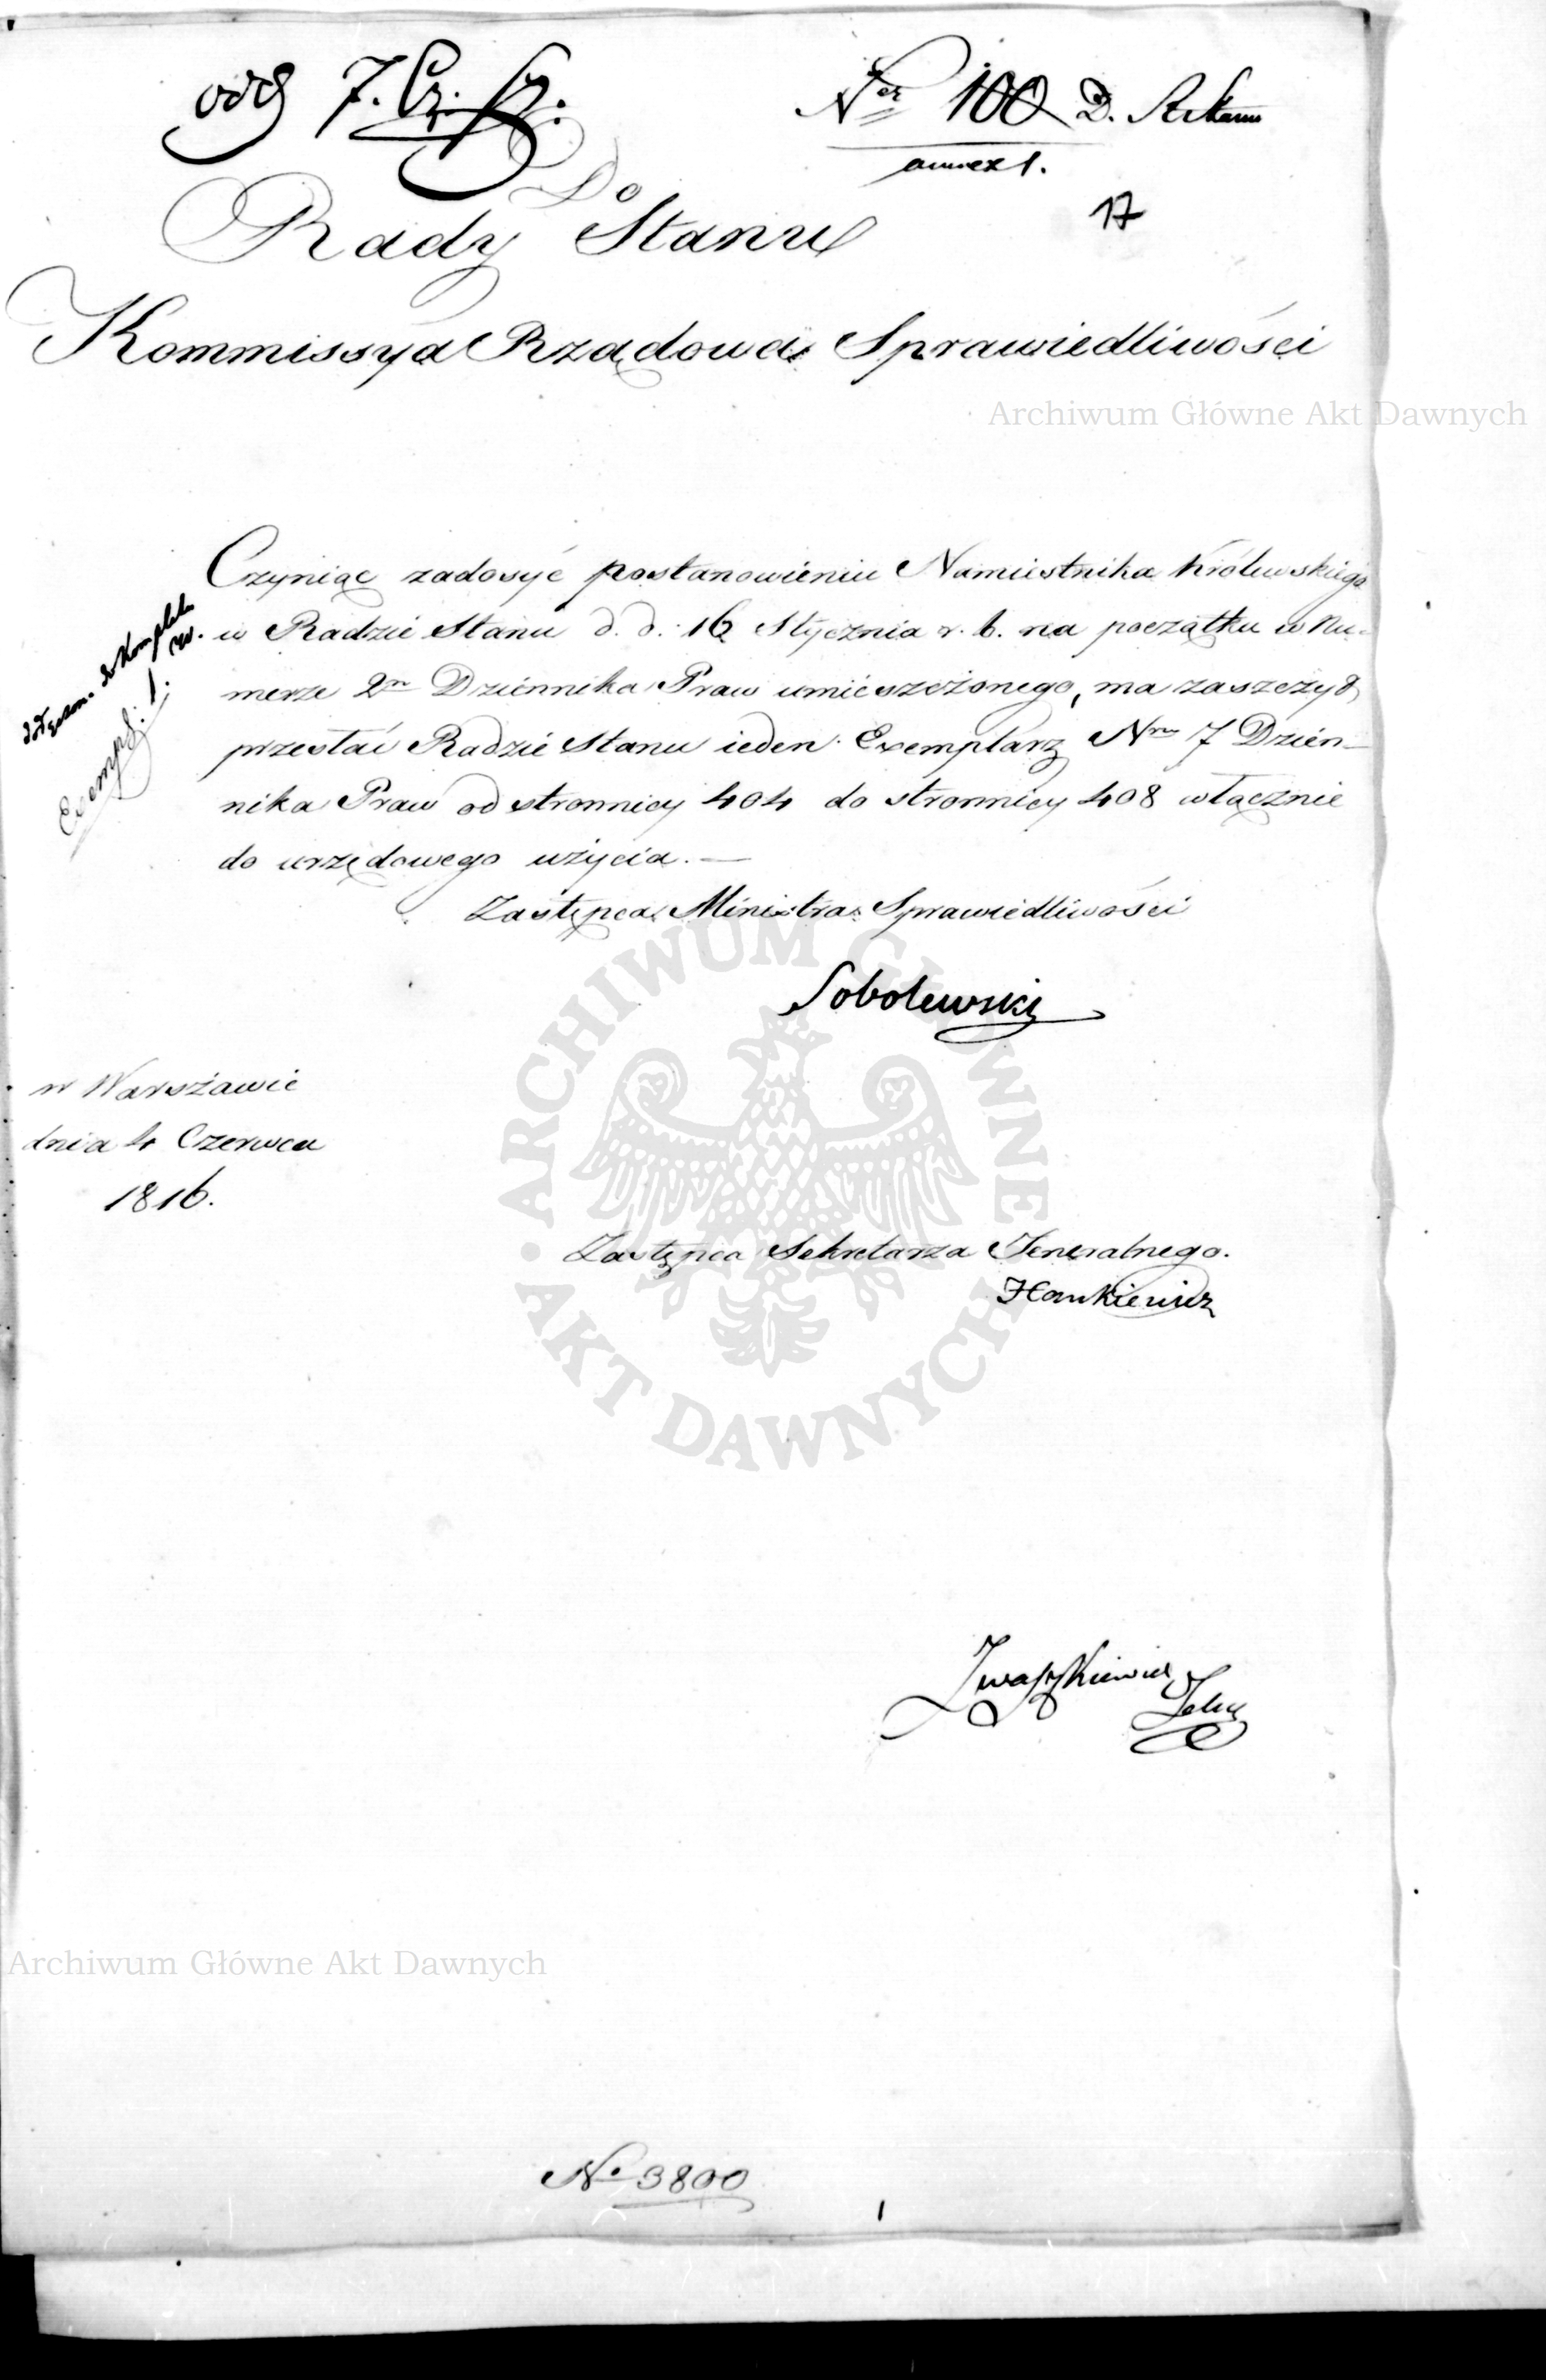 odd 7. Cz.
Ner 100 D. R. Stanu
annex 1.
17
Do
Rady Stanu
Kommissya Rządowa Sprawiedliwości
Archiwum Główne Akt Dawnych
Czyniąc zadosyć postanowieniu Namiestnika Królewskiego
w Radzie Stanu d. d. 16 Stycznia r. b. na początku w Nu-
merze 2m Dziennika Praw umieszczonego, ma zaszczyt
przesłać Radzie Stanu ieden Exemplarz Nru 7 Dzien-
nika Praw od stronnicy 404 do stronnicy 408 włącznie
do urzędowego użycia. —
do Kompletu
Exempl: 1.
Zastępca Ministra Sprawiedliwości
Sobolewski
w Warszawie
dnia 4 Czerwca
1816.
Zastępca Sekretarza Jeneralnego.
Hankiewicz
ARCHIWUM GŁÓWNE · AKT DAWNYCH ·
Iwaszkiewicz
Archiwum Główne Akt Dawnych
No 3800
1